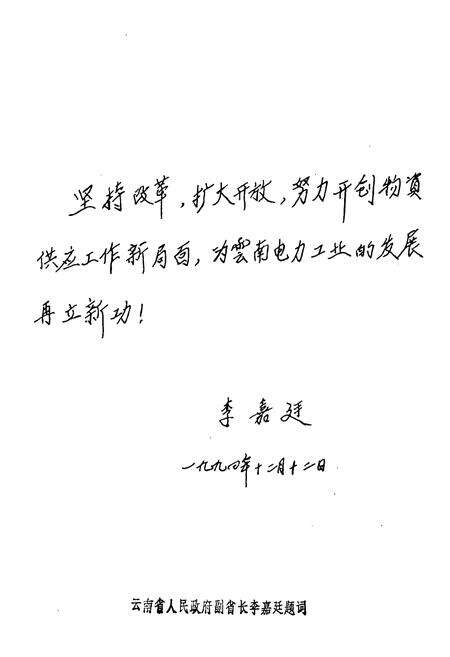 坚持改革，扩大开放，努力开创物資
供应工作新局面，为雲南电力工业的发展
再立新功！
李嘉廷
一九九四年十二月十二日
云南省人民政府副省长李嘉廷题词